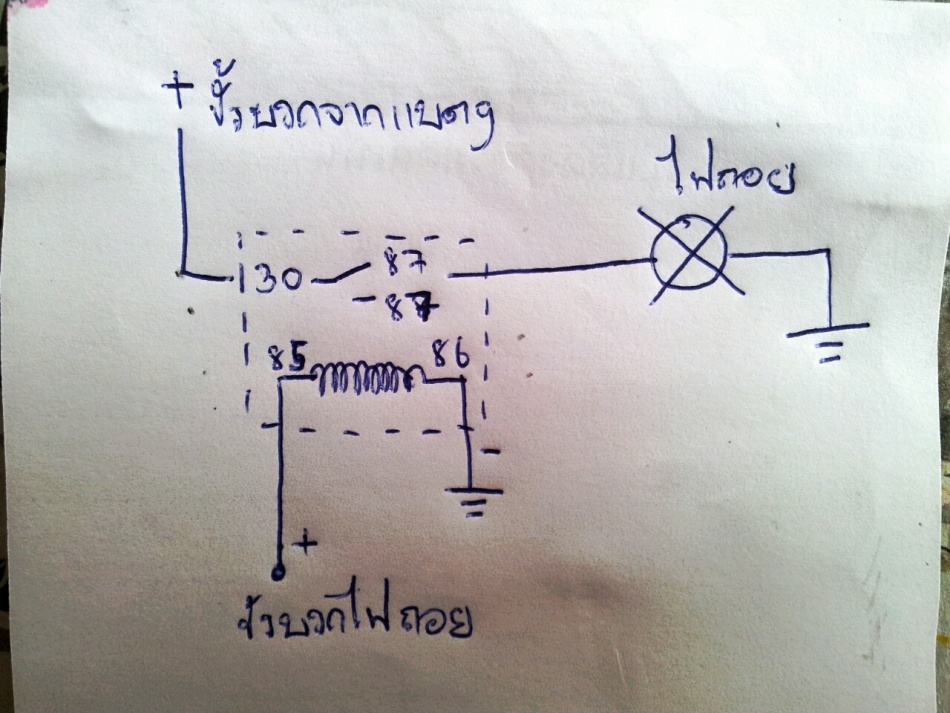 + ขั้วบวกจากแบตฯ
ไฟถอย
30 87
87
85 86
+
ขั้วบวกไฟถอย